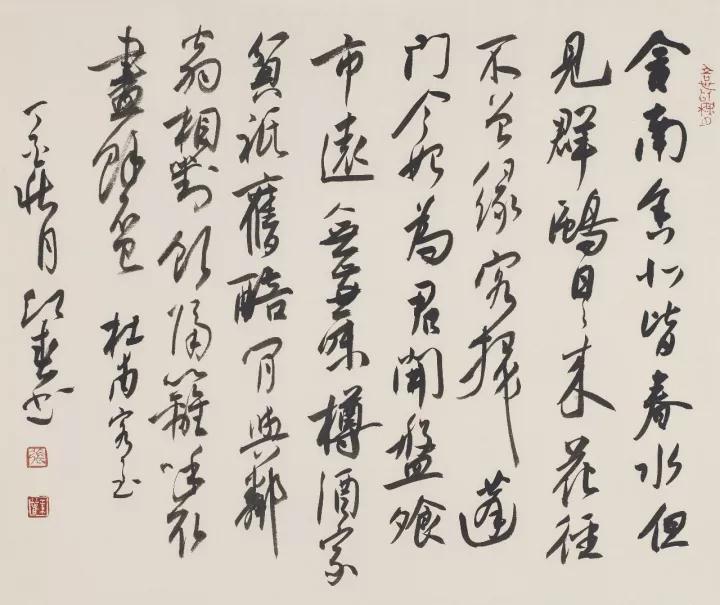 舍南舍北皆春水但
見群鷗日〻来花徑
不曾緣客掃蓬
門今始為君開盤飧
市遠無兼味樽酒家
貧祇舊醅肯與鄰
翁相對飲隔籬呼取
盡餘杯 杜甫客至
丁酉壮月江春书
張